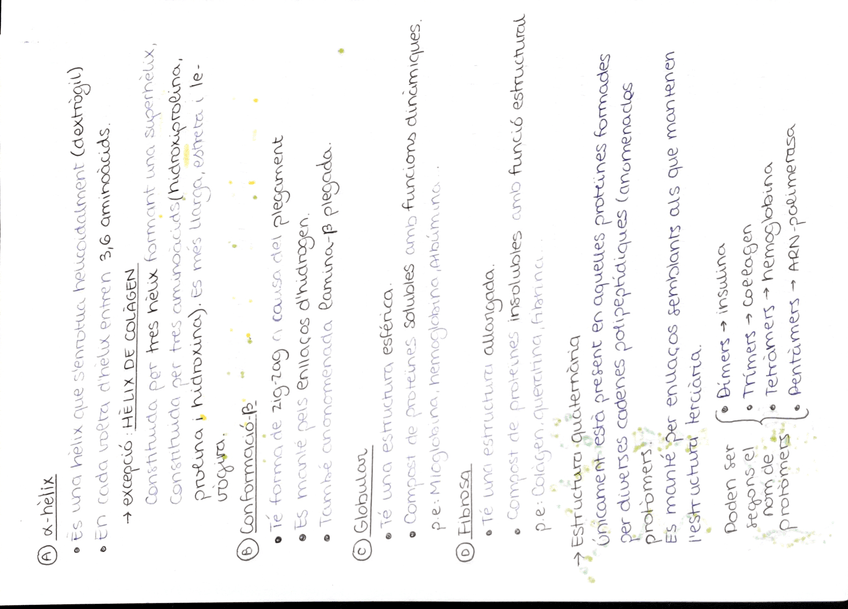 Ⓐ α-hèlix
• És una hèlix que s'enrotlla helicoidalment (dextrògil)
• En cada volta d'hèlix entren 3,6 aminoàcids.
→ excepció: HÈLIX DE COLÀGEN
Constituïda per tres hèlix formant una superhèlix,
constituïda per tres aminoàcids (hidroxiprolina,
prolina i hidroxina). És més llarga, estreta i le-
vògira.
Ⓑ Conformació-β
• Té forma de zig-zag a causa del plegament
• Es manté pels enllaços d'hidrogen.
• També anonomenada làmina-β plegada.
Ⓒ Globular
• Té una estructura esfèrica.
• Compost de proteïnes solubles amb funcions dinàmiques.
p.e: Mioglobina, hemoglobina, Albúmina...
Ⓓ Fibrosa
• Té una estructura allargada.
• Compost de proteïnes insolubles amb funció estructural
p.e: Colàgen, queratina, fibrina...
→ Estructura Quaternària
Únicament està present en aquelles proteïnes formades
per diverses cadenes polipeptídiques (anomenades
protòmers.
Es manté per enllaços semblants als que mantenen
l'estructura terciària.
Poden ser
segons el
nom de
protòmers
• Dímers → insulina
• Trímers → col·lagen
• Tetràmers → hemoglobina
• Pentàmers → ARN-polimerasa